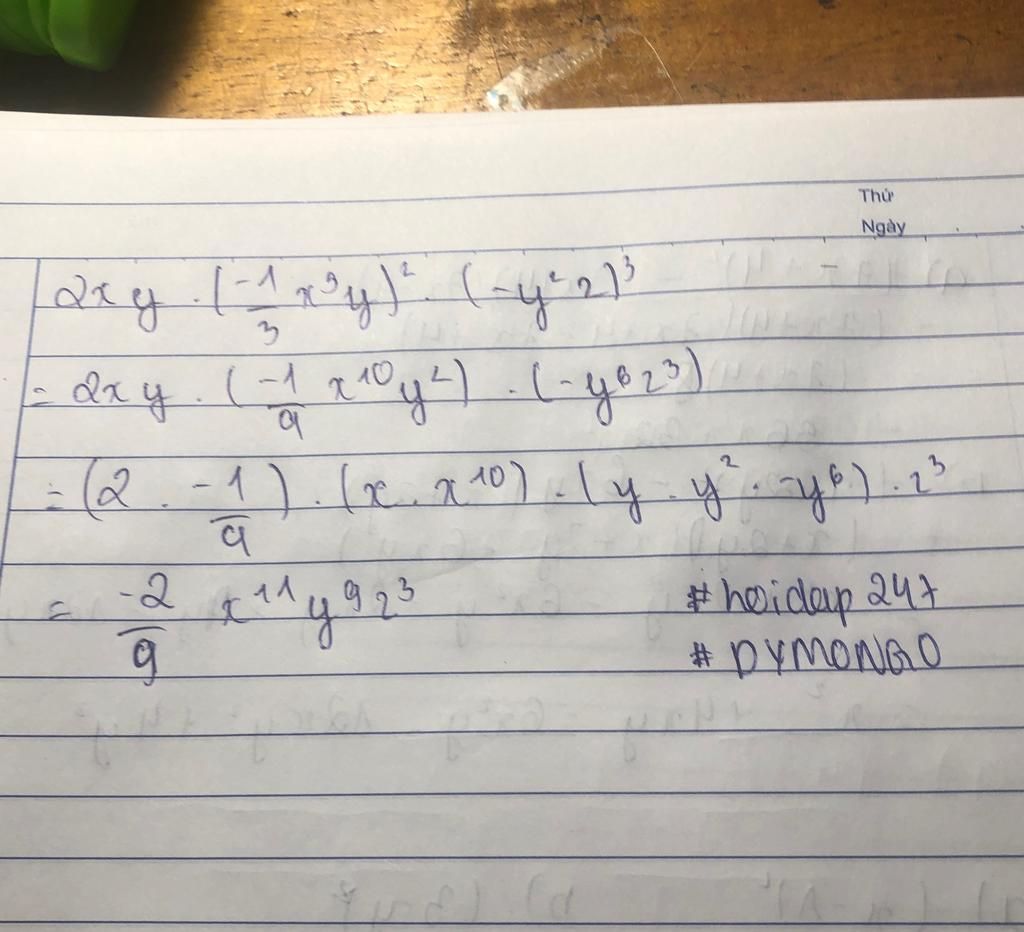 Thứ
Ngày
2xy . (-1/3 x⁵y)² . (-y²z)³
= 2xy . (-1/9 x¹⁰y²) . (-y⁶z³)
= (2 . -1/9) . (x . x¹⁰) . (y . y² . -y⁶) . z³
= -2/9 x¹¹y⁹z³
#hoidap247
#DYMONGO